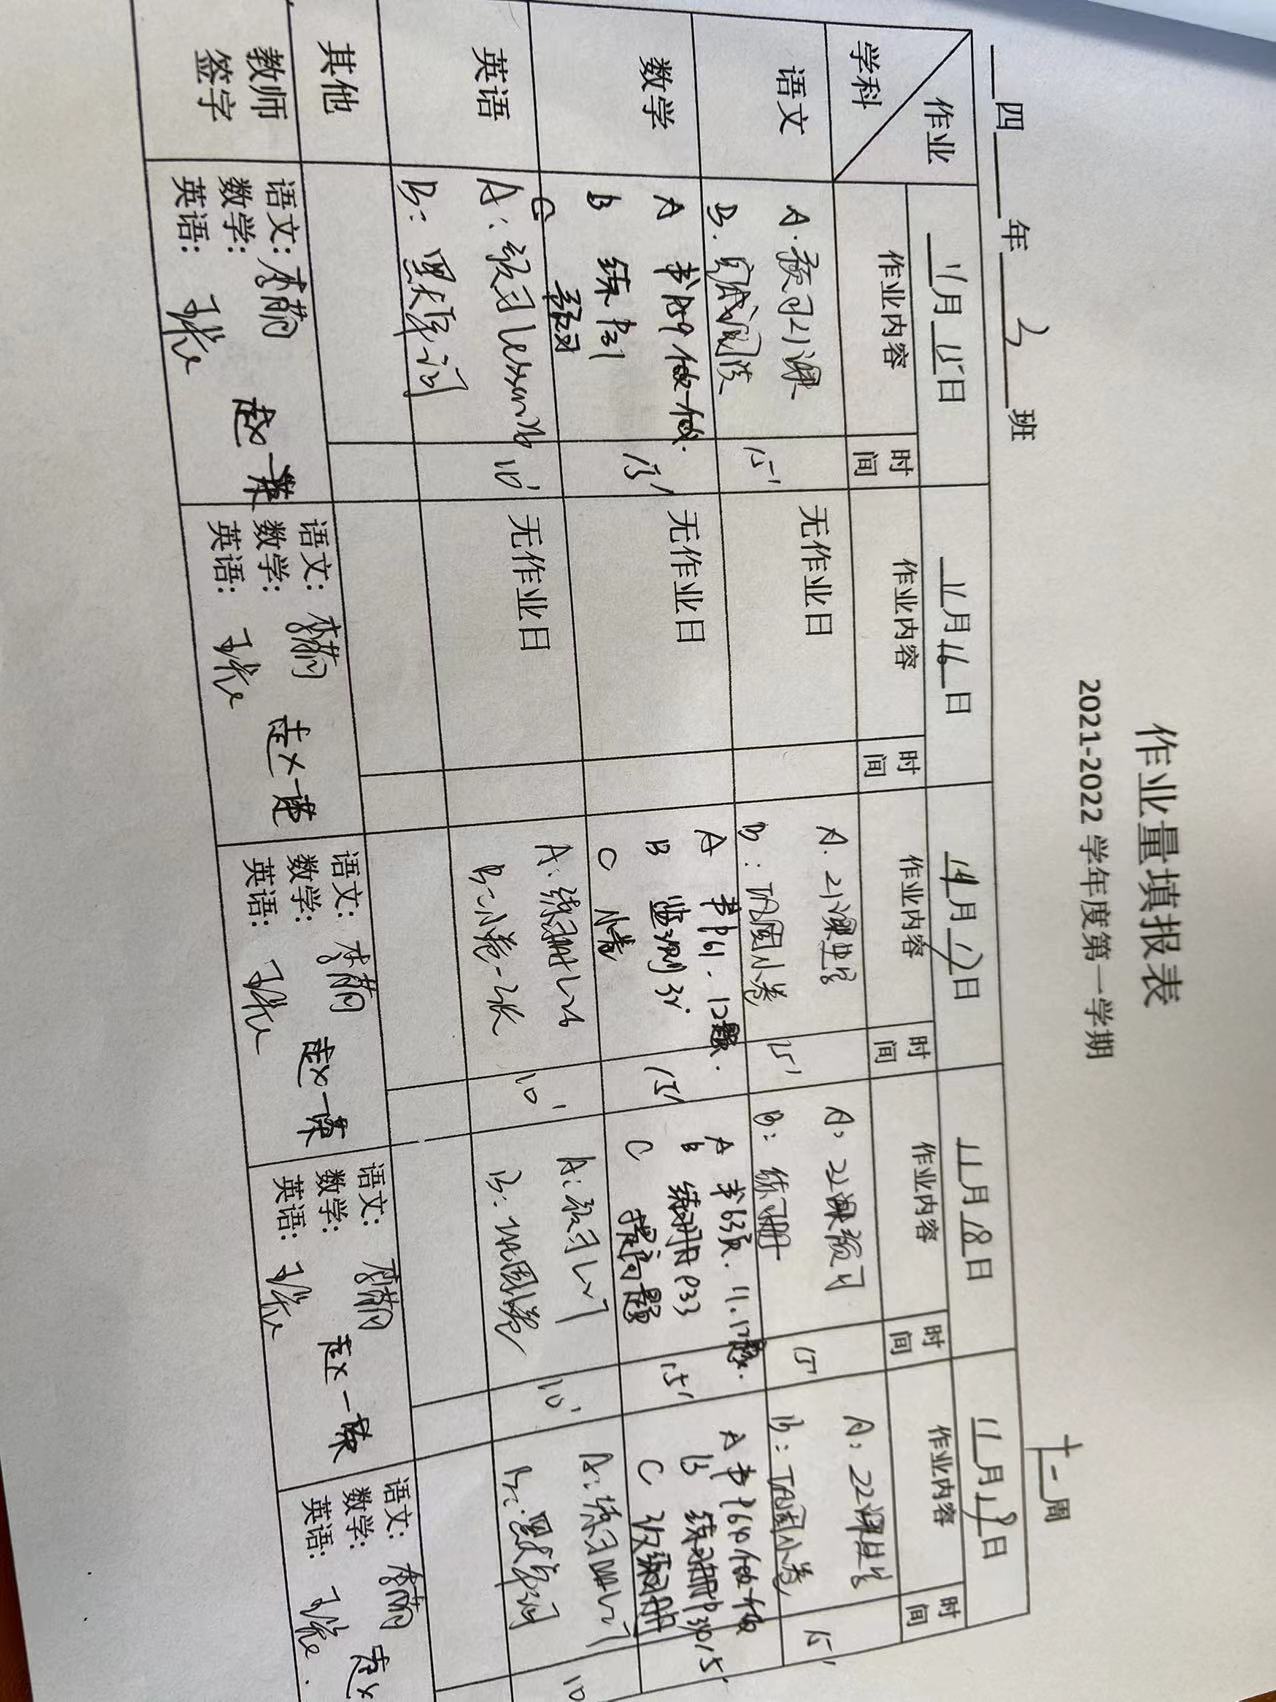 作业量填报表
2021-2022 学年度第一学期
四 年 3 班
十一周
作业
学科
11月15日
11月16日
11月18日
11月19日
作业内容
时间
作业内容
时间
作业内容
时间
作业内容
时间
作业内容
时间
语文
A. 预习21课
B.
15'
无作业日
A. 21课生字
B: 巩固小卷
15'
A: 22课预习
B: 练习册
15'
A: 22课生字
B: 巩固小卷
15'
数学
A 书P59做一做.
B 练P31
C 预习
15'
无作业日
A 书P61. 12题.
B 监测
C
15'
A 书63页. 11. 12题.
B 练习册P33
C 提高题
15'
A 书P64做一做
B 练习册P34
C 改练习册
15'
英语
A: 预习lesson26
B: 默单词
10'
无作业日
A: 练习册L26
B: 小卷一张
10'
A: 预习L27
B: 巩固小卷
10'
A: 练习册L27
B: 默单词
10
其他
教师
签字
语文:
数学:
英语:
语文:
数学:
英语:
语文:
数学:
英语:
语文:
数学:
英语:
语文:
数学:
英语: